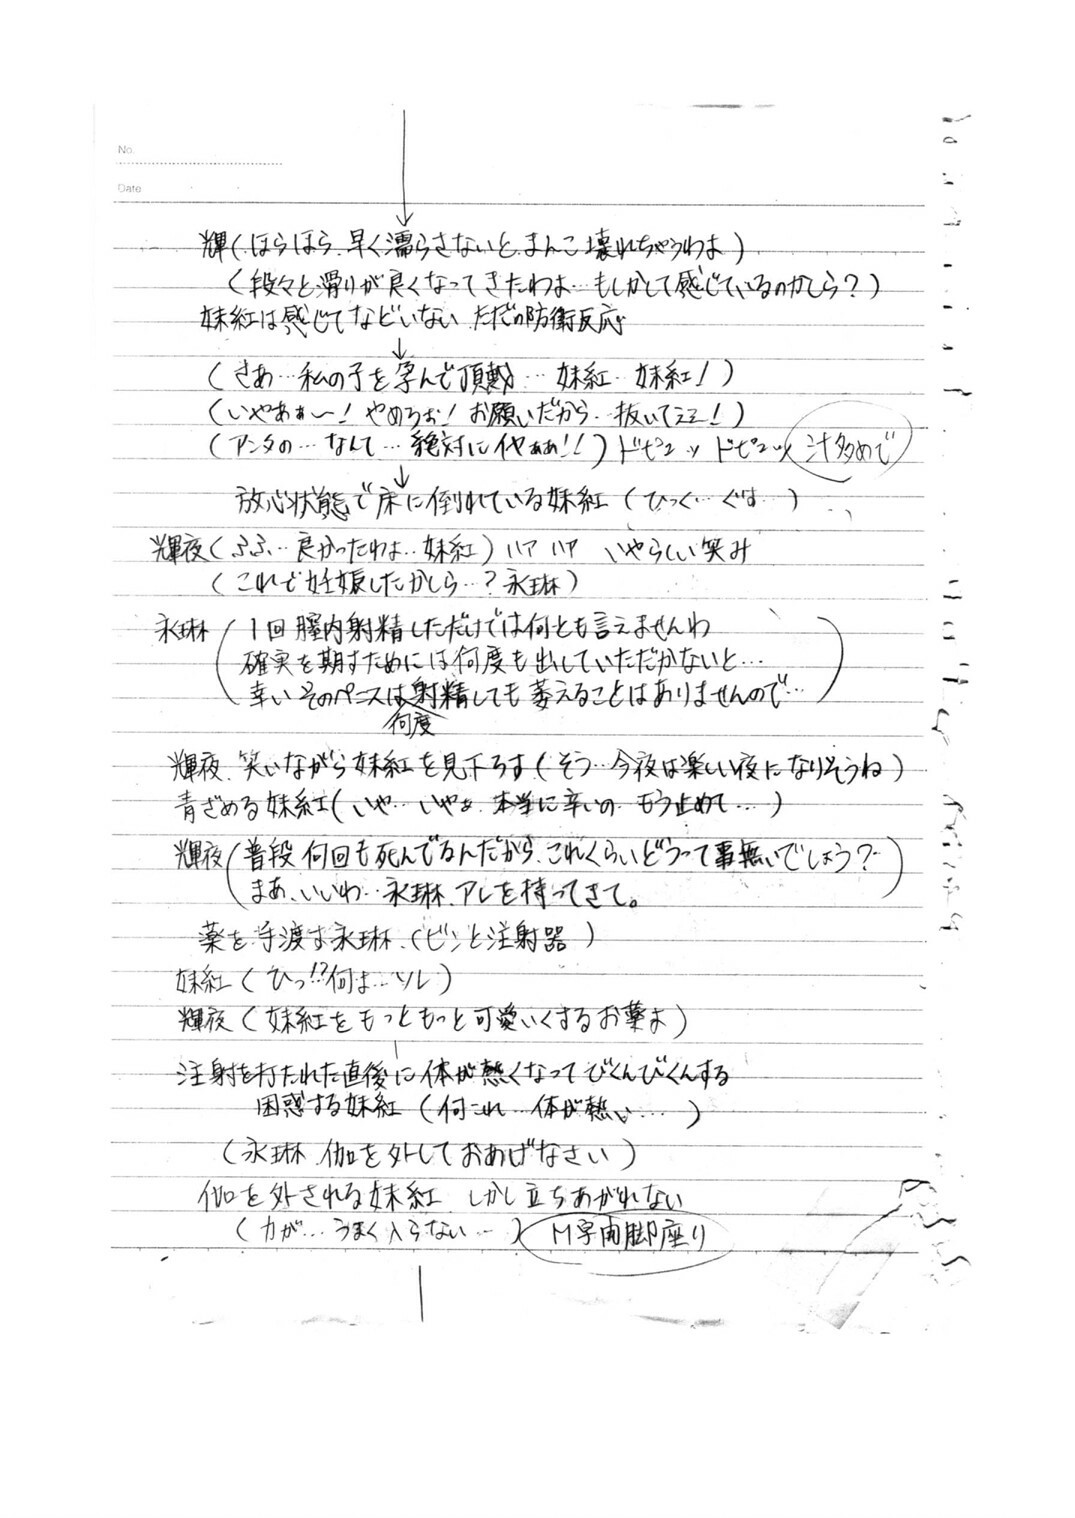 No.
Date
輝(ほらほら、早く濡らさないと、まんこ壊れちゃうわよ)
(段々と滑りが良くなってきたわよ…もしかして感じているのかしら?)
妹紅は感じてなどいない ただの防衛反応
(さあ…私の子を孕んで頂戴…妹紅…妹紅!)
(いやあぁ〜! やめろぉ! お願いだから…抜いてぇぇ!)
(アンタの…なんて…絶対にイヤぁぁ!!) ドピュッ ドピュッ 汁多めで
放心状態で床に倒れている妹紅 (ひっく…ぐす…)
輝夜(ふふ…良かったわよ…妹紅) ハァ ハァ いやらしい笑み
(これで妊娠したかしら…? 永琳)
永琳(1回膣内射精しただけでは何とも言えませんわ
確実を期すためには何度も出していただかないと…
幸いそのペニスは何度射精しても萎えることはありませんので…)
輝夜、笑いながら妹紅を見下ろす(そう…今夜は楽しい夜になりそうね)
青ざめる妹紅(いや…いやよ…本当に辛いの…もう止めて…)
輝夜(普段何回も死んでるんだから、これくらいどうって事無いでしょう?
まあ、いいわ…永琳、アレを持ってきて。)
薬を手渡す永琳 (ビンと注射器)
妹紅(ひっ!?何よ…ソレ)
輝夜(妹紅をもっともっと可愛いくするお薬よ)
注射を打たれた直後に体が熱くなってびくんびくんする
困惑する妹紅(何これ…体が熱い…)
(永琳、伽を外しておあげなさい)
伽を外される妹紅 しかし立ちあがれない
(力が…うまく入らない…) M字開脚座り